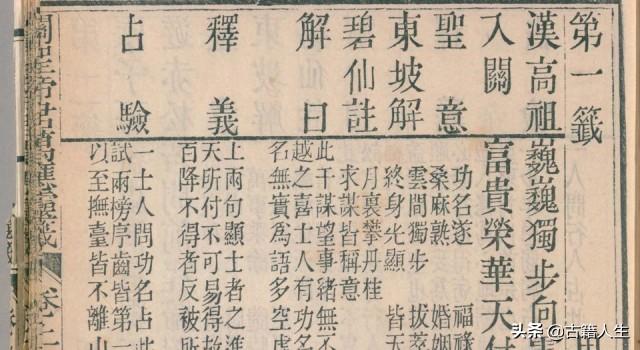 第一籤
漢高祖 巍巍獨步向
入關 富貴榮華天
聖意 功名遂 福
桑麻熟 婚姻
東坡解 雲間獨步 拔萃
終身光顯 皆天
碧仙註 月裏攀丹桂
求謀皆稱意
解曰 此干謀望事緒無
越之喜士人有功名
名無實爲語多空虛
釋義 上兩句顯士者之進
天所付不可易得故
百降不得者反被
占驗 一士人問功名占此
試兩榜序齒皆第一
以至撫臺皆不離山
關聖帝君萬應靈籤 卷之
头条 @古籍人生